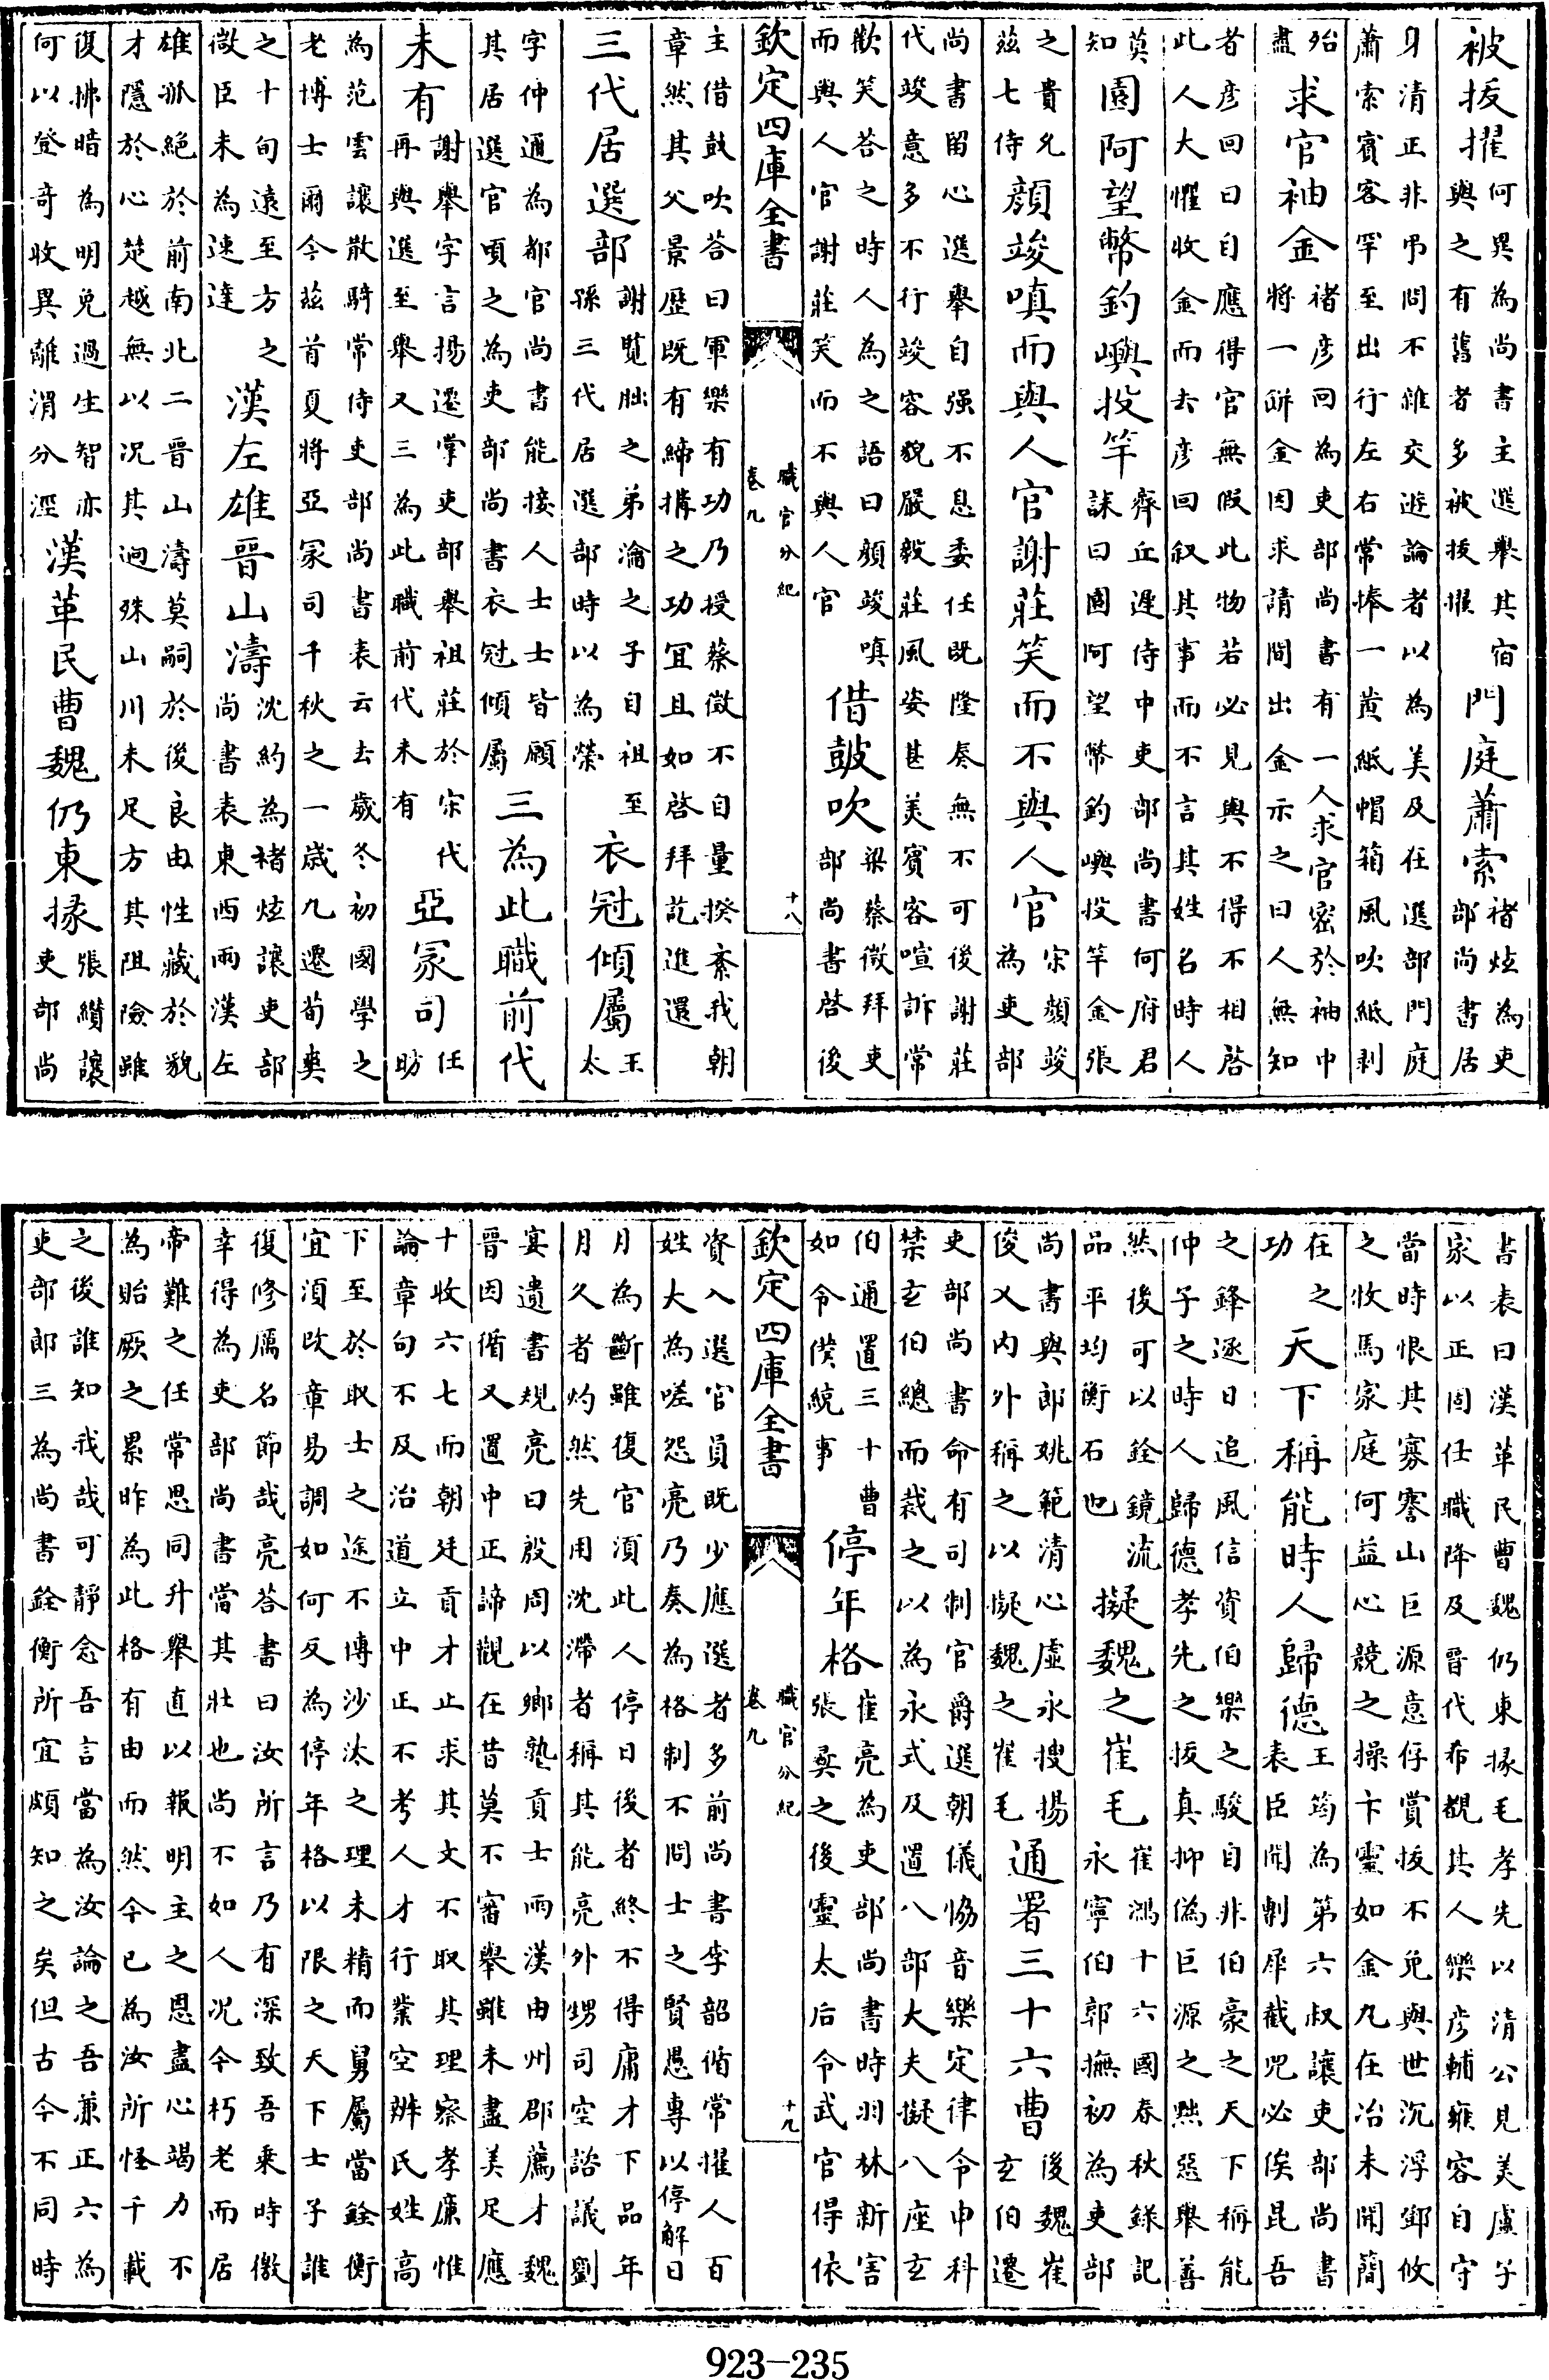 被拔擢何異為尚書主選舉其宿與之有舊者多被拔擢門庭蕭索褚炫為吏部尚書居
身清正非弔問不雜交遊論者以為美及在選部門庭
蕭索賓客罕至出行左右常捧一黃紙帽箱風吹紙剥
殆盡求官袖金褚彦回為吏部尚書有一人求官密於袖中將一餅金因求請間出金示之曰人無知
者彦回曰自應得官無假此物若必見與不得不相啓
此人大懼收金而去彦回叙其事而不言其姓名時人
莫知園阿望幣釣嶼投竿齊丘遲侍中吏部尚書何府君誄曰園阿望幣釣嶼投竿金張
之貴允茲七侍顔竣嗔而與人官謝莊笑而不與人官宋顔竣為吏部
尚書留心選舉自强不息委任既隆奏無不可後謝莊
代竣意多不行竣容貌嚴毅莊風姿甚美賓客喧訴常
歡笑荅之時人為之語曰顔竣嗔而與人官謝莊笑而不與人官借鼓吹梁蔡徵拜吏部尚書啓後
欽定四庫全書 職官分紀 卷九 十八
主借鼓吹荅曰軍樂有功乃授蔡徵不自量揆紊我朝
章然其父景歴既有締搆之功宜且如啓拜訖進還
三代居選部謝覽朏之弟瀹之子自祖至孫三代居選部時以為榮衣冠傾屬王太
字仲通為都官尚書能接人士士皆願其居選官頃之為吏部尚書衣冠傾屬三為此職前代
未有謝舉字言揚遷掌吏部舉祖莊於宋代再與選至舉又三為此職前代未有亞冢司任昉
為范雲讓散騎常侍吏部尚書表云去歲冬初國學之
老博士爾今茲首夏將亞冢司千秋之一歳九遷荀奭
之十旬遠至方之微臣未為速達漢左雄晉山濤沈約為褚炫讓吏部尚書表東西兩漢左
雄孤絶於前南北二晉山濤莫嗣於後良由性藏於貌
才隱於心楚越無以况其逈殊山川未足方其阻險雖
復拂暗為明免過生智亦何以登奇收異離渭分涇漢革民曹魏仍東掾張纘讓吏部尚
書表曰漢革民曹魏仍東掾毛孝先以清公見美盧子
家以正固任職降及晉代希覩其人樂彦輔雍容自守
當時恨其寡譽山巨源意存賞拔不免與世沉浮鄧攸
之牧馬家庭何益心競之操卞靈如金凡在冶未開簡
在之功天下稱能時人歸德王筠為第六叔讓吏部尚書表臣聞剸犀截兕必俟昆吾
之鋒逐日追風信資伯樂之駿自非伯豪之天下稱能
仲子之時人歸德孝先之拔真抑偽巨源之黜惡舉善
然後可以銓鏡流品平均衡石也擬魏之崔毛崔鴻十六國春秋錄記永寧伯郭撫初為吏部
尚書與郎姚範清心虛永搜揚俊乂内外稱之以擬魏之崔毛通署三十六曹後魏崔玄伯遷
吏部尚書命有司制官爵選朝儀恊音樂定律令申科
禁玄伯總而裁之以為永式及置八部大夫擬八座玄
伯通置三十曹如令僕統事停年格崔亮為吏部尚書時羽林新害張彛之後靈太后令武官得依
欽定四庫全書 職官分紀 卷九 十九
資入選官員既少應選者多前尚書李韶循常擢人百
姓大為嗟怨亮乃奏為格制不問士之賢愚專以停解日
月為斷雖復官須此人停日後者終不得庸才下品年
月久者灼然先用沈滯者稱其能亮外甥司空諮議劉
宴遺書規亮曰殷周以鄉塾貢士兩漢由州郡薦才魏
晉因循又置中正諦觀在昔莫不審舉雖未盡美足應
十收六七而朝廷貢才止求其文不取其理察孝廉惟
論章句不及治道立中正不考人才行業空辨氏姓高
下至於取士之途不博沙汰之理未精而舅屬當銓衡
宜須改章易調如何反為停年格以限之天下士子誰
復修厲名節哉亮荅書曰汝所言乃有深致吾乗時徼
幸得為吏部尚書當其壯也尚不如人况今朽老而居
帝難之任常思同升舉直以報明主之恩盡心竭力不
為貽厥之累昨為此格有由而然今已為汝所怪千載
之後誰知我哉可靜念吾言當為汝論之吾兼正六為
吏部郎三為尚書銓衡所宜頗知之矣但古今不同時
923-235